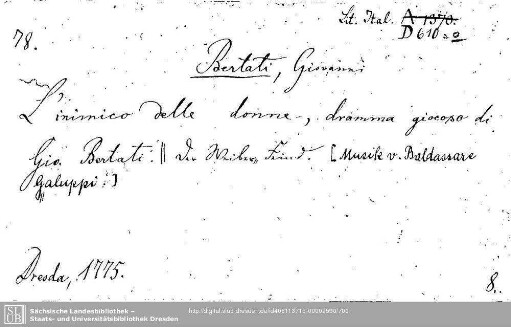 Lit. Ital. A 1370.
D 610
78.
Bertati, Giovanni
L'inimico delle donne, dramma giocoso di
Gio. Bertati. || Der Weiber Feind. [Musik v. Baldassare
Galuppi.]
Dresda, 1775.
8.
Sächsische Landesbibliothek –
Staats- und Universitätsbibliothek Dresden